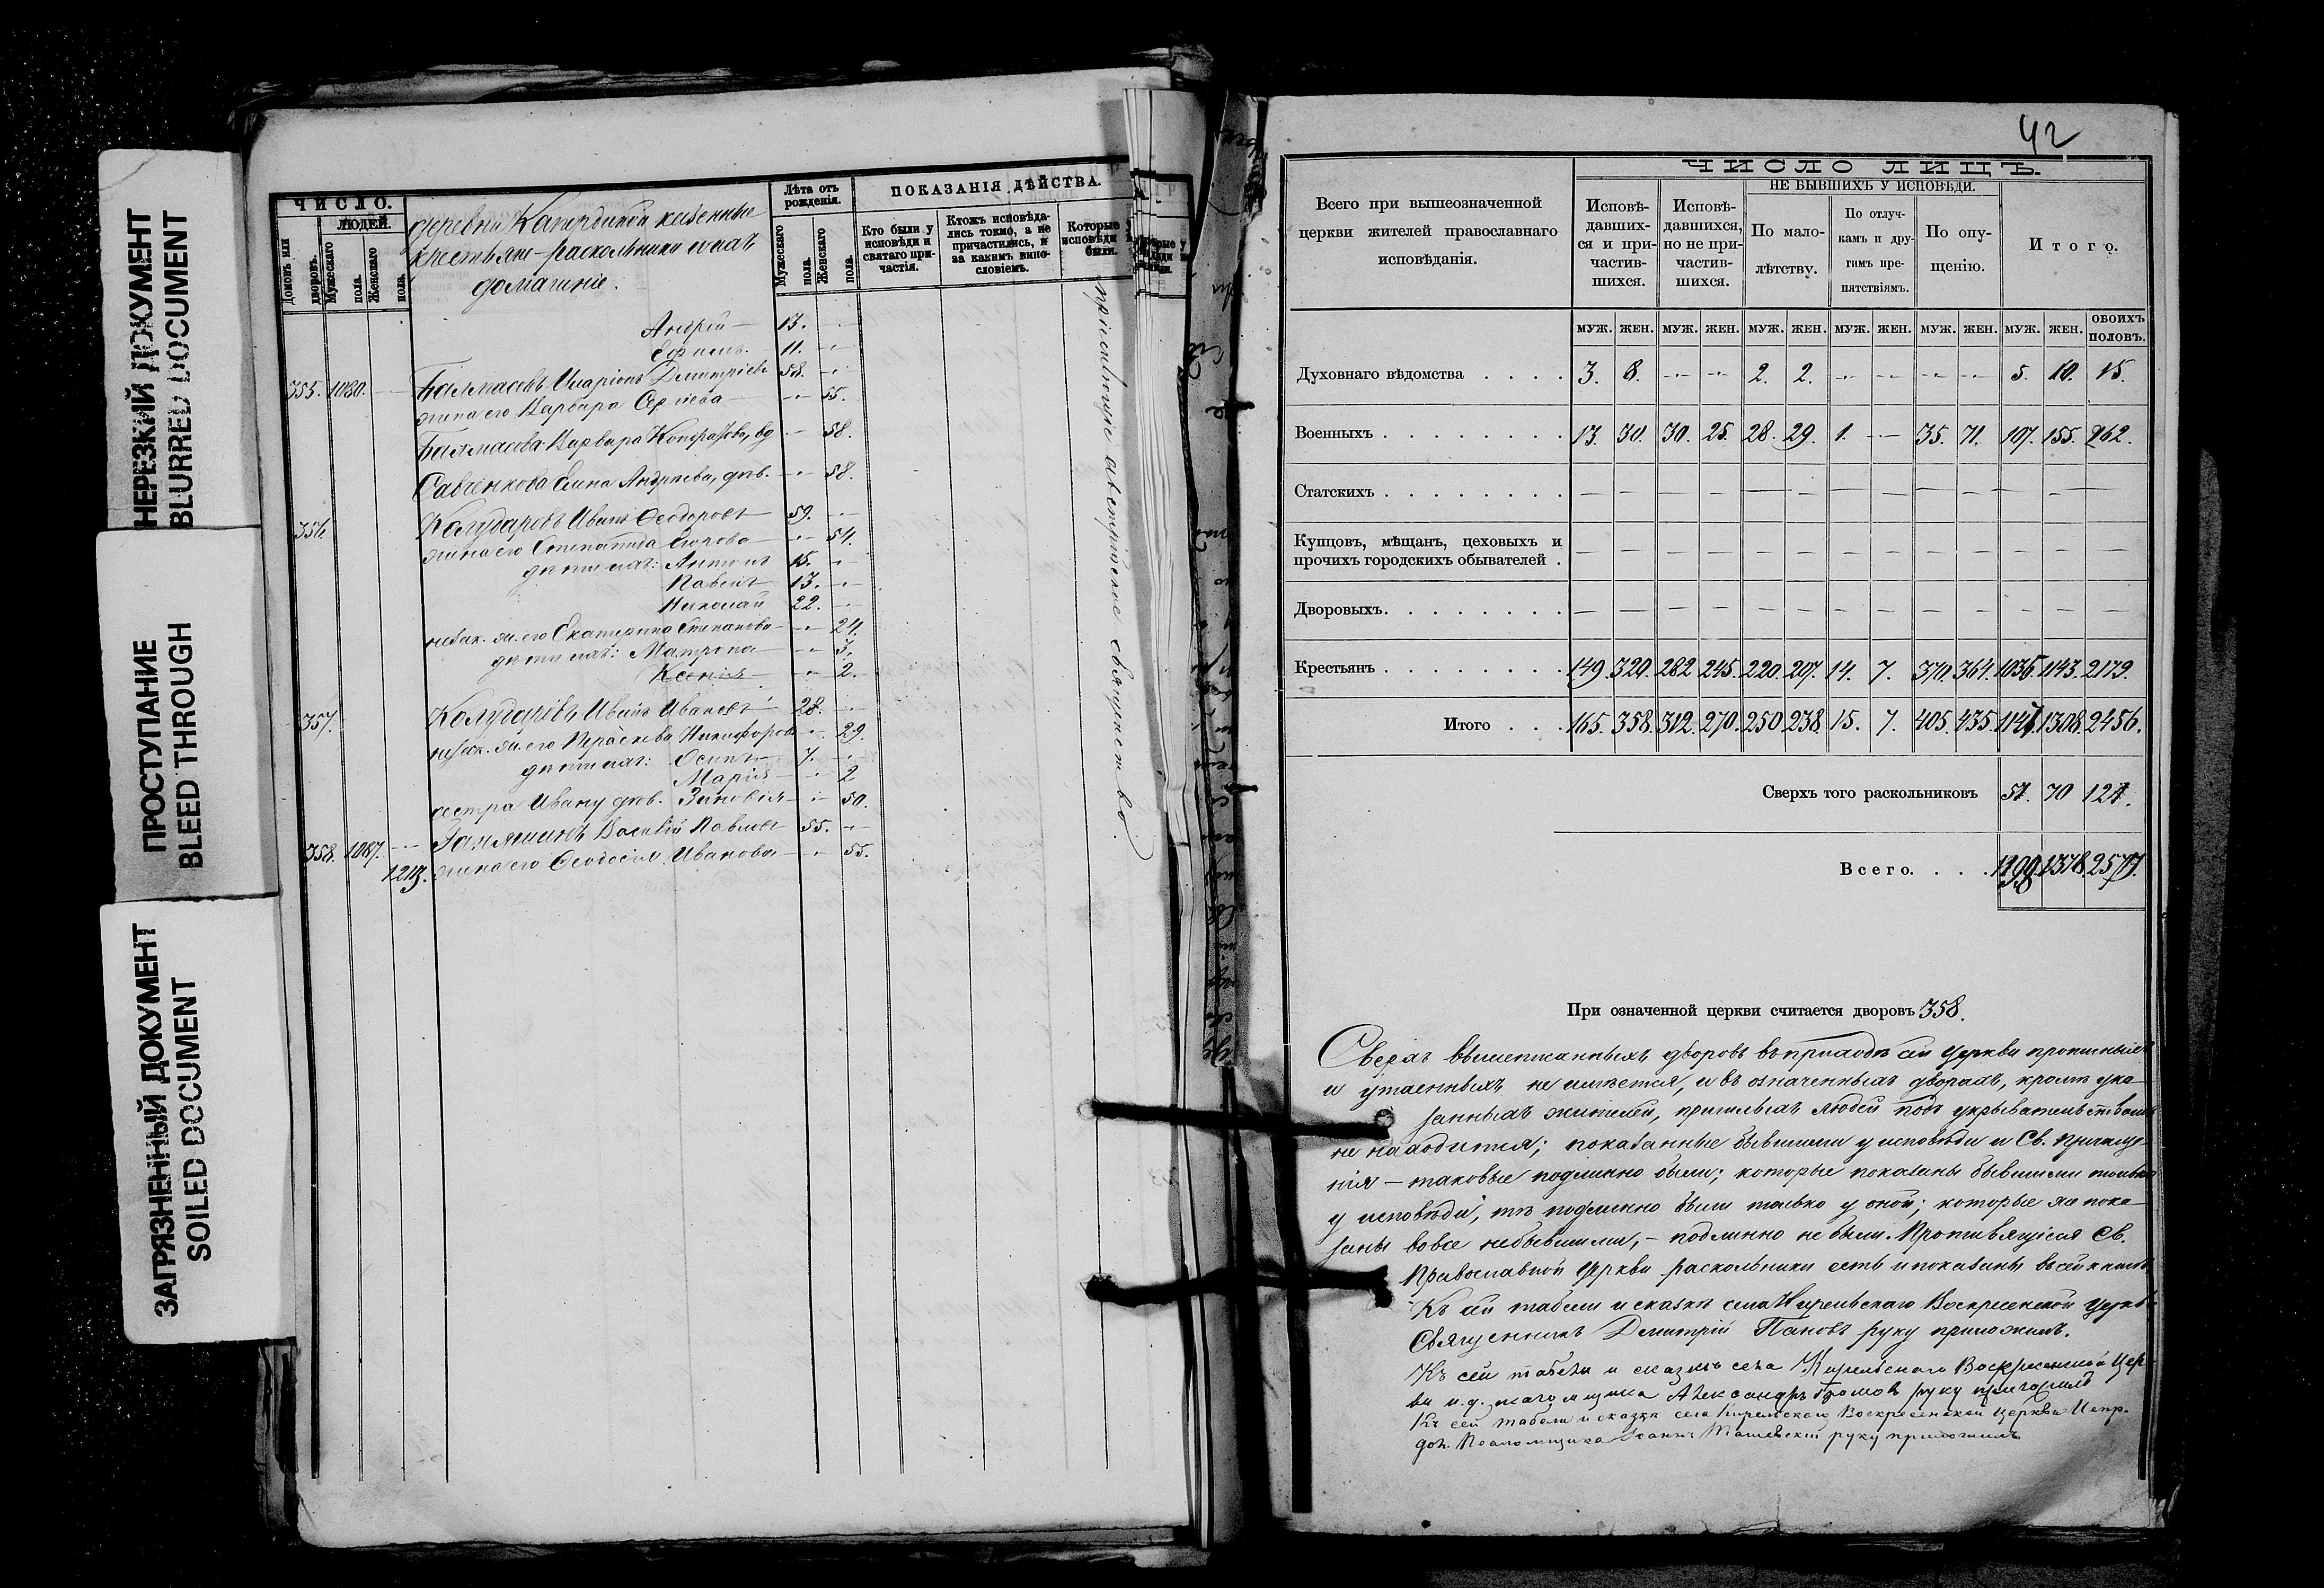 НЕРЕЗКИЙ ДОКУМЕНТ
BLURRED DOCUMENT
ПРОСТУПАНИЕ
BLEED THROUGH
ЗАГРЯЗНЕННЫЙ ДОКУМЕНТ
SOILED DOCUMENT
ЧИСЛО.
ЛЮДЕЙ.
Домовъ или дворовъ.
Мужескаго пола.
Женскаго пола.
деревни казенные
крестьяне-раскольники и ихъ
домашніе.
Лѣта отъ рожденія.
Мужескаго пола.
Женскаго пола.
ПОКАЗАНІЯ ДѢЙСТВА.
Кто были у исповѣди и святаго причастія.
Ктожъ исповѣдались токмо, а не причастились, и за какимъ винословіемъ.
Которые у исповѣди не были.
Андрей — 13. —
Ефимъ. 11. —
355. 1080. — Балмасовъ Иларіонъ Димитріевъ 58. —
жена его Варвара Сергіева — 55.
Балмасова Варвара вд — 58.
Савченкова Елена Андреева, дѣв. — 58.
356. Колударовъ Иванъ Ѳеодоровъ 59. —
жена его Степанида Егорова — 54.
дѣти ихъ: Антонъ 15. —
Павелъ 13. —
Николай 22. —
незак. ж. его Екатерина Степанова — 24.
дѣти ихъ: Матрона — 3.
Ксенія — 2.
357. Колударовъ Иванъ Ивановъ 28. —
незак. ж. его Параскева Никифорова — 29.
дѣти ихъ: Осипъ 7. —
Марія — 2
сестра Ивану дѣв. Зиновія — 50.
358. 1087. — Василій Павловъ 55. —
1213. жена его Ѳеодосія Иванова — 55.
австрійское священство.
42
Всего при вышеозначенной церкви жителей православнаго исповѣданія.
ЧИСЛО ЛИЦЪ.
НЕ БЫВШИХЪ У ИСПОВѢДИ.
Исповѣдавшихся и причастившихся.
Исповѣдавшихся, но не причастившихся.
По малолѣтству.
По отлучкамъ и другимъ препятствіямъ.
По опущенію.
Итого.
МУЖ. ЖЕН. МУЖ. ЖЕН. МУЖ. ЖЕН. МУЖ. ЖЕН. МУЖ. ЖЕН. МУЖ. ЖЕН. ОБОИХЪ ПОЛОВЪ.
Духовнаго вѣдомства . . . . 3. 8. — — 2. 2. — — — — 5. 10. 15.
Военныхъ . . . . . . . . 13. 30. 30. 25. 28. 29. 1. — 35. 71. 107. 155. 262.
Статскихъ . . . . . . . . — — — — — — — — — — — — —
Купцовъ, мѣщанъ, цеховыхъ и
прочихъ городскихъ обывателей . — — — — — — — — — — — — —
Дворовыхъ. . . . . . . . — — — — — — — — — — — — —
Крестьянъ . . . . . . . . 149. 320. 282. 245. 220. 207. 14. 7. 370. 364. 1036. 1143. 2179.
Итого . . . 165. 358. 312. 270. 250. 238. 15. 7. 405. 435. 1308. 2456.
Сверхъ того раскольниковъ 70
Всего. . . . 1378. 2577.
При означенной церкви считается дворовъ 358.
Сверхъ вышеписанныхъ дворовъ въ приходѣ сей церкви прописныхъ
и утаенныхъ не имѣется, и въ означенныхъ дворахъ, кромѣ ука-
занныхъ жителей, пришлыхъ людей подъ укрывательствомъ
не находится; показанные бывшими у исповѣди и Св. Причаще-
нія — таковые подлинно были; которые показаны бывшими только
у исповѣди, тѣ подлинно были только у оной; которые же пока-
заны вовсе небывшими, — подлинно не были. Противящіеся Св.
Православной Церкви раскольники есть и показаны въ сей книгѣ.
Къ сей табели и сказкѣ села Кирельскаго Воскресенской Церкви
Священникъ Димитрій Пановъ руку приложилъ.
Къ сей табели и сказкѣ села Кирельскаго Воскресенской Церк-
ви и.д. псаломщика Александръ Громовъ руку приложилъ
Къ сей табели и сказкѣ села Кирельскаго Воскресенской Церкви Испр.
дол. Псаломщика руку приложилъ